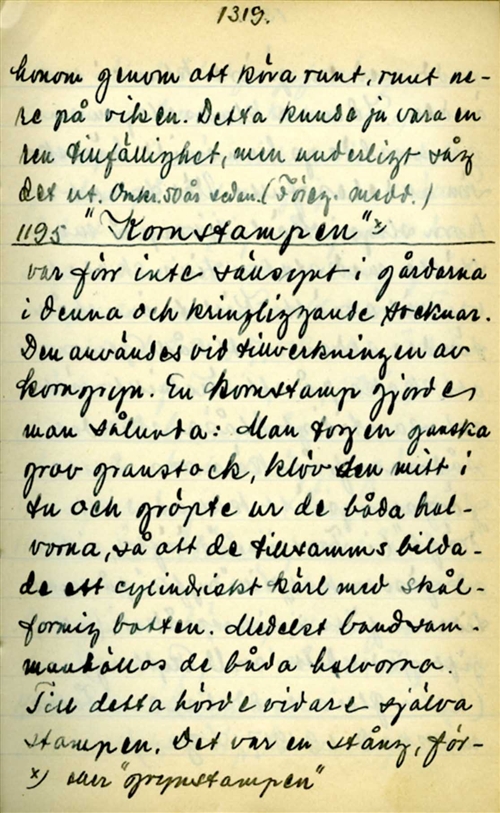 1319.
honom genom att köra runt, runt ne-
re på viken. Detta kunde ju vara en
ren tillfällighet, men underligt såg
det ut. Omkr. 50 år sedan. (Föreg. medd.)
1195 "Kornstampen" x)
var förr inte sällsynt i gårdarna
i denna och kringliggande socknar.
Den användes vid tillverkningen av
korngryn. En kornstamp gjordes
man sålunda: Man tog en ganska
grov granstock, klöv den mitt i
tu och gröpte ur de båda hal-
vorna, så att de tillsammans bilda-
de ett cylindriskt kärl med skål-
formig botten. Medelst band sam-
manhöllos de båda halvorna.
Till detta hörde vidare själva
stampen. Det var en stång, för-
x) eller "grynstampen"